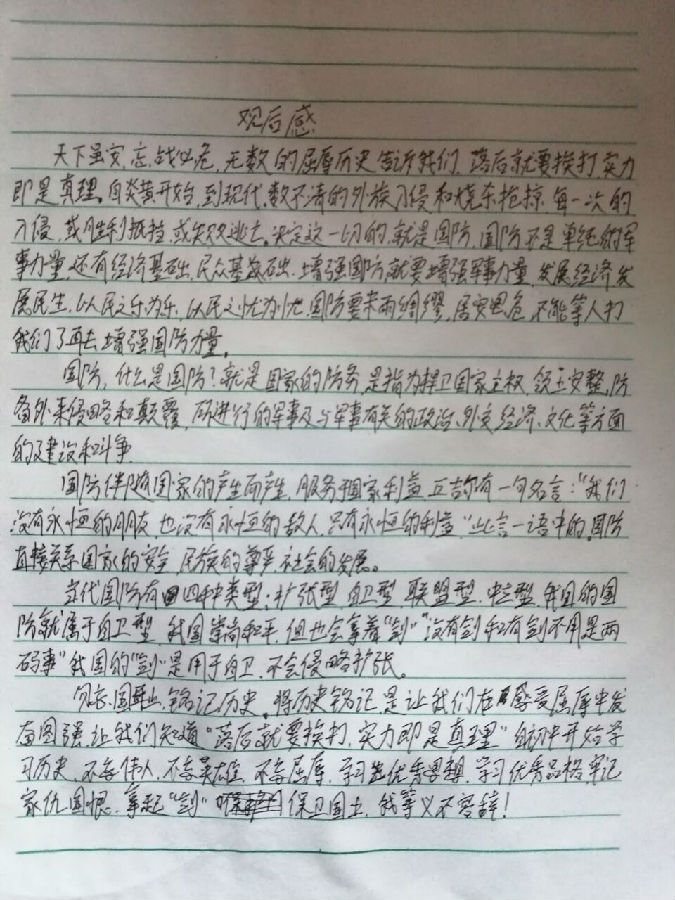 观后感
天下虽安,忘战必危,无数的屈辱历史告诉我们,落后就要挨打,实力
即是真理。自炎黄开始,到现代,数不清的外族入侵和烧杀抢掠,每一次的
入侵,或胜利抵挡,或失败逃亡。决定这一切的,就是国防,国防不是单纯的军
事力量,还有经济基础,民众基础,增强国防就要增强军事力量,发展经济,发
展民生,以人民之乐为乐,以民之忧为忧,国防要未雨绸缪,居安思危,不能等人打
我们了再去增强国防力量。
国防,什么是国防?就是国家的防务,是指为捍卫国家主权,领土安整,防
备外来侵略和颠覆,所进行的军事及与军事有关的政治、外交、经济、文化等方面
的建设和斗争
国防伴随国家的产生而产生,服务于国家利益,丘吉尔有一句名言:“我们
没有永恒的朋友,也没有永恒的敌人,只有永恒的利益”此言一语中的,国防
直接关系国家的安全,民族的尊严,社会的发展。
当代国防有四种类型:扩张型,自卫型,联盟型,中立型,我国的国
防就属于自卫型,我国崇尚和平,但也会拿着“剑”,“没有剑和有剑不用是两
码事”我国的“剑”是用于自卫,不会侵略扩张。
勿忘国耻,铭记历史。将历史铭记是让我们在感受屈辱中发
奋图强,让我们知道“落后就要挨打,实力即是真理”自初中开始学
习历史,不忘伟人,不忘英雄,不忘屈辱,学习优秀思想,学习优秀品格,牢记
家仇国恨,拿起“剑”保卫国土,我等义不容辞!